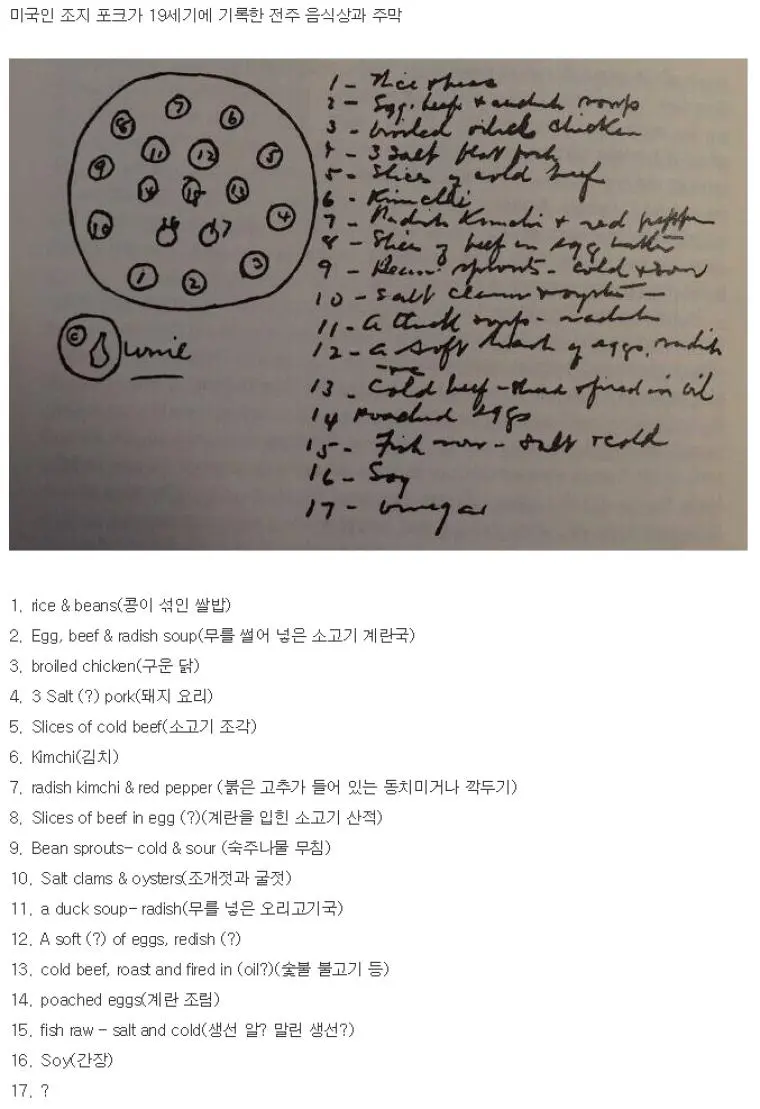 미국인 조지 포크가 19세기에 기록한 전주 음식상과 주막
7
8
6
11
12
5
9
14
15
13
10
16
17
4
1
2
3
wine
1 - Rice & beans
2 - Egg, beef & radish soup
3 - broiled chicken
4 - 3 Salt pork
5 - Slices of cold beef
6 - Kimchi
7 - Radish Kimchi & red pepper
8 - Slices of beef in egg batter
9 - Bean sprouts - cold & sour
10 - Salt clams & oysters -
11 - A duck soup - radish
12 - A soft of eggs, radish
13 - Cold beef - fried in oil
14 Poached eggs
15 - Fish - salt & cold
16 - Soy
17 - Vinegar
1. rice & beans(콩이 섞인 쌀밥)
2. Egg, beef & radish soup(무를 썰어 넣은 소고기 계란국)
3. broiled chicken(구운 닭)
4. 3 Salt (?) pork(돼지 요리)
5. Slices of cold beef(소고기 조각)
6. Kimchi(김치)
7. radish kimchi & red pepper (붉은 고추가 들어 있는 동치미거나 깍두기)
8. Slices of beef in egg (?)(계란을 입힌 소고기 산적)
9. Bean sprouts- cold & sour (숙주나물 무침)
10. Salt clams & oysters(조개젓과 굴젓)
11. a duck soup- radish(무를 넣은 오리고기국)
12. A soft (?) of eggs, redish (?)
13. cold beef, roast and fired in (oil?)(숯불 불고기 등)
14. poached eggs(계란 조림)
15. fish raw - salt and cold(생선 알? 말린 생선?)
16. Soy(간장)
17. ?